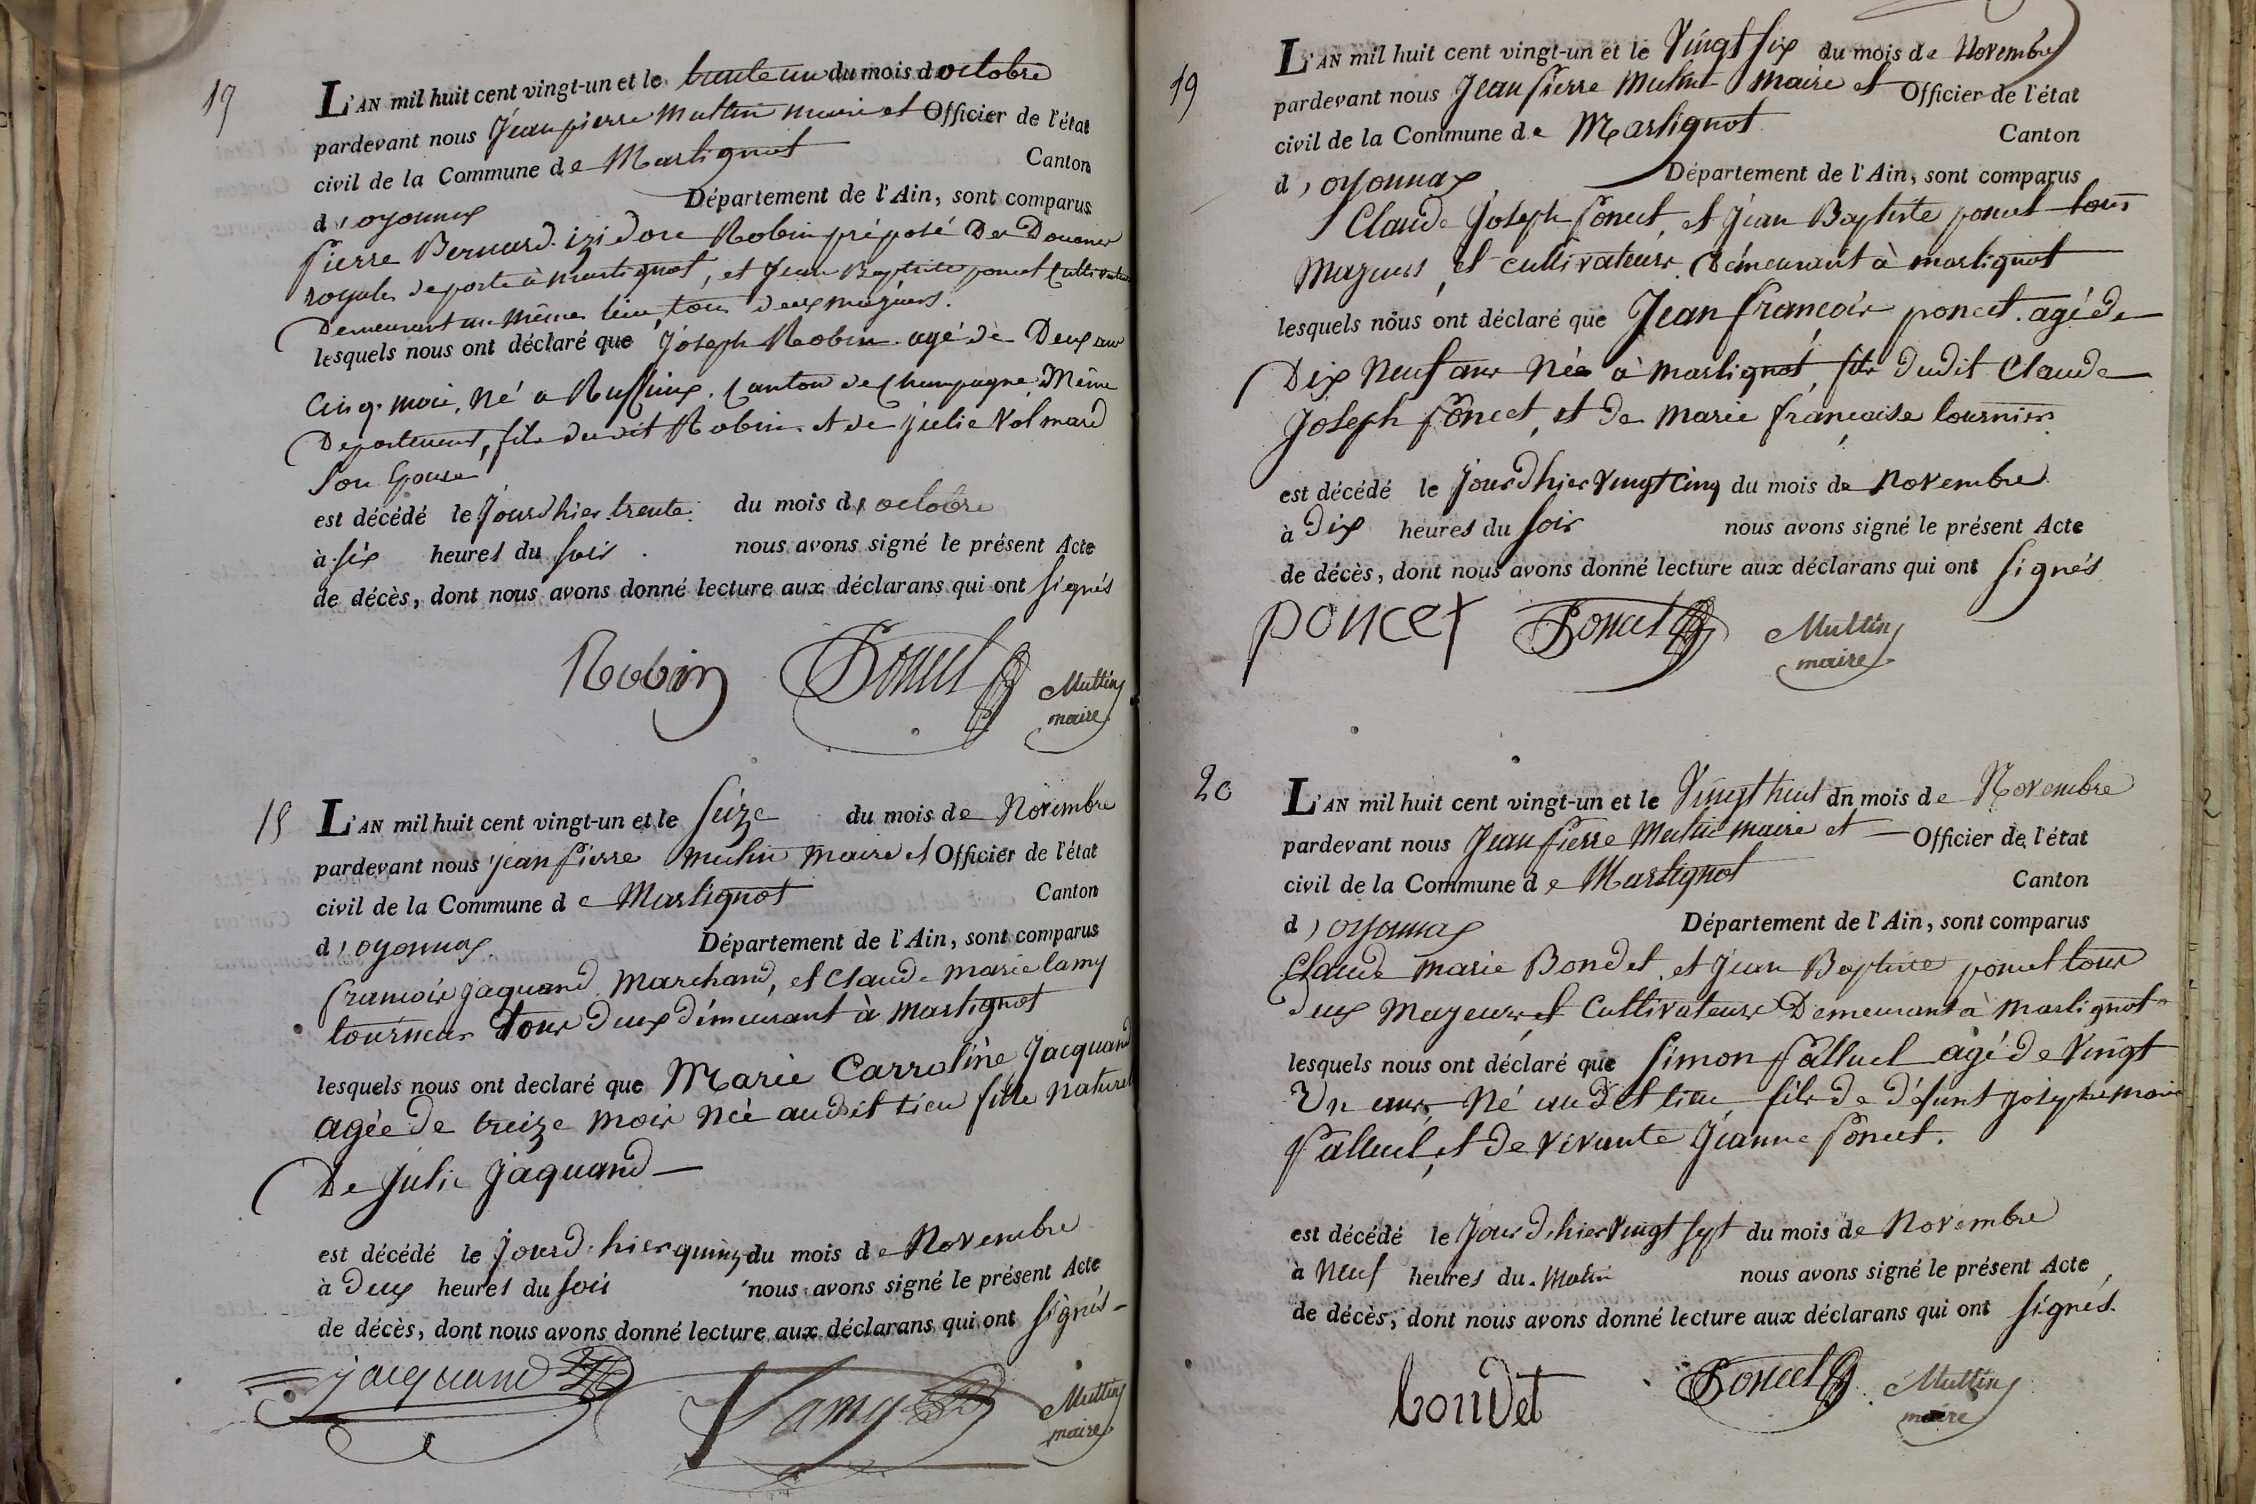 19
L'AN mil huit cent vingt-un et le trente un du mois d octobre
pardevant nous Jean pierre Muttin maire et Officier de l'état
civil de la Commune de Martignat Canton
d'oyonnax Département de l'Ain, sont comparus
Pierre Bernard izidore Robin préposé Des Douanes
royales de poste à martignat, et Jean Baptiste poncet Cultivateur
Demeurant au même lieu, tous deux majeurs.
lesquels nous ont déclaré que Joseph Robin agé de Deux ans
Cinq mois, Né a Ruffieux, Canton de Champagne Même
Departement, fils dudit Robin et de julie Volmard
Son Epouse
est décédé le jourdhier trente du mois d octobre
à six heures du soir nous avons signé le présent Acte
de décès, dont nous avons donné lecture aux déclarans qui ont signés
Robin Poncet Muttin
maire
18
L'AN mil huit cent vingt-un et le Seize du mois de Novembre
pardevant nous jean pierre Mutin Maire et Officier de l'état
civil de la Commune de Martignat Canton
d'oyonnax. Département de l'Ain, sont comparus
francois jaquand Marchand, et Claude Marie lamy
tourneur tous deux démeurant à Martignat
lesquels nous ont declaré que Marie Carroline Jacquand
agée de treize mois née audit lieu fille naturel
De Julie Jaquand
est décédé le jourd'hier quinz du mois de Novembre
à Deux heures du soir nous avons signé le présent Acte
de décès, dont nous avons donné lecture aux déclarans qui ont signés
jacquand Lamy Muttin
maire
19
L'AN mil huit cent vingt-un et le Vingt six du mois de Novembre
pardevant nous Jean Pierre Mutin Maire et Officier de l'état
civil de la Commune de Martignat Canton
d'oyonnax Département de l'Ain, sont comparus
Claude Joseph Poncet, et Jean Baptiste poncet tous
Majeurs, et cultivateurs, Démeurant à martignat
lesquels nous ont déclaré que Jean francois poncet agé de
Dix Neuf ans Née à Martignat, fils dudit Claude
Joseph Poncet, et de Marie francoise tournier
est décédé le jourdhier vingt Cinq du mois de Novembre
à Dix heures du soir nous avons signé le présent Acte
de décès, dont nous avons donné lecture aux déclarans qui ont signés
poncet Poncet Muttin
maire
20
L'AN mil huit cent vingt-un et le Vingt huit dn mois de Novembre
pardevant nous Jean Pierre Mutin maire et Officier de l'état
civil de la Commune de Martignat Canton
d'oyonnax Département de l'Ain, sont comparus
Claude Marie Bondet, et Jean Baptiste poncet tous
deux Majeurs, et Cultivateurs Demeurant à Martignat
lesquels nous ont déclaré que Simon Palluel agé de Vingt
Un ans, Né audit lieu fils de défunt joseph marie
Palluel, et de vivante Jeanne Poncet.
est décédé le jour d'hier vingt sept du mois de Novembre
à Neuf heures du Matin nous avons signé le présent Acte
de décès, dont nous avons donné lecture aux déclarans qui ont signés.
bondet Poncet Muttin
maire